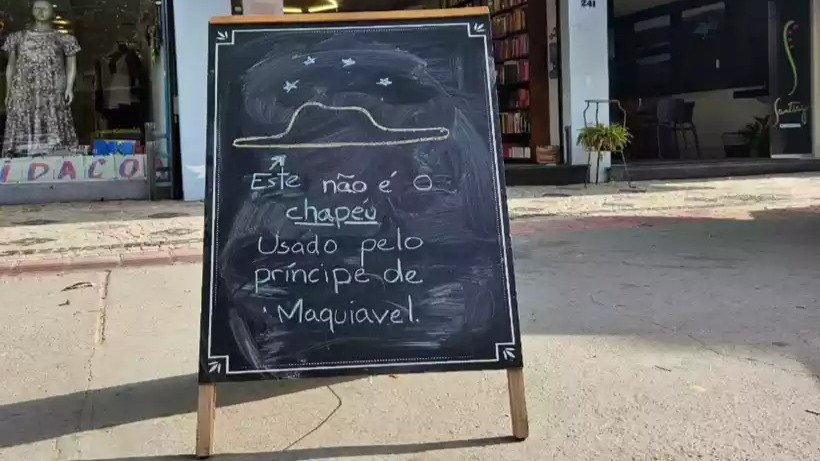 241
IDAÇO
Este não é o
chapéu
Usado pelo
príncipe de
Maquiavel.